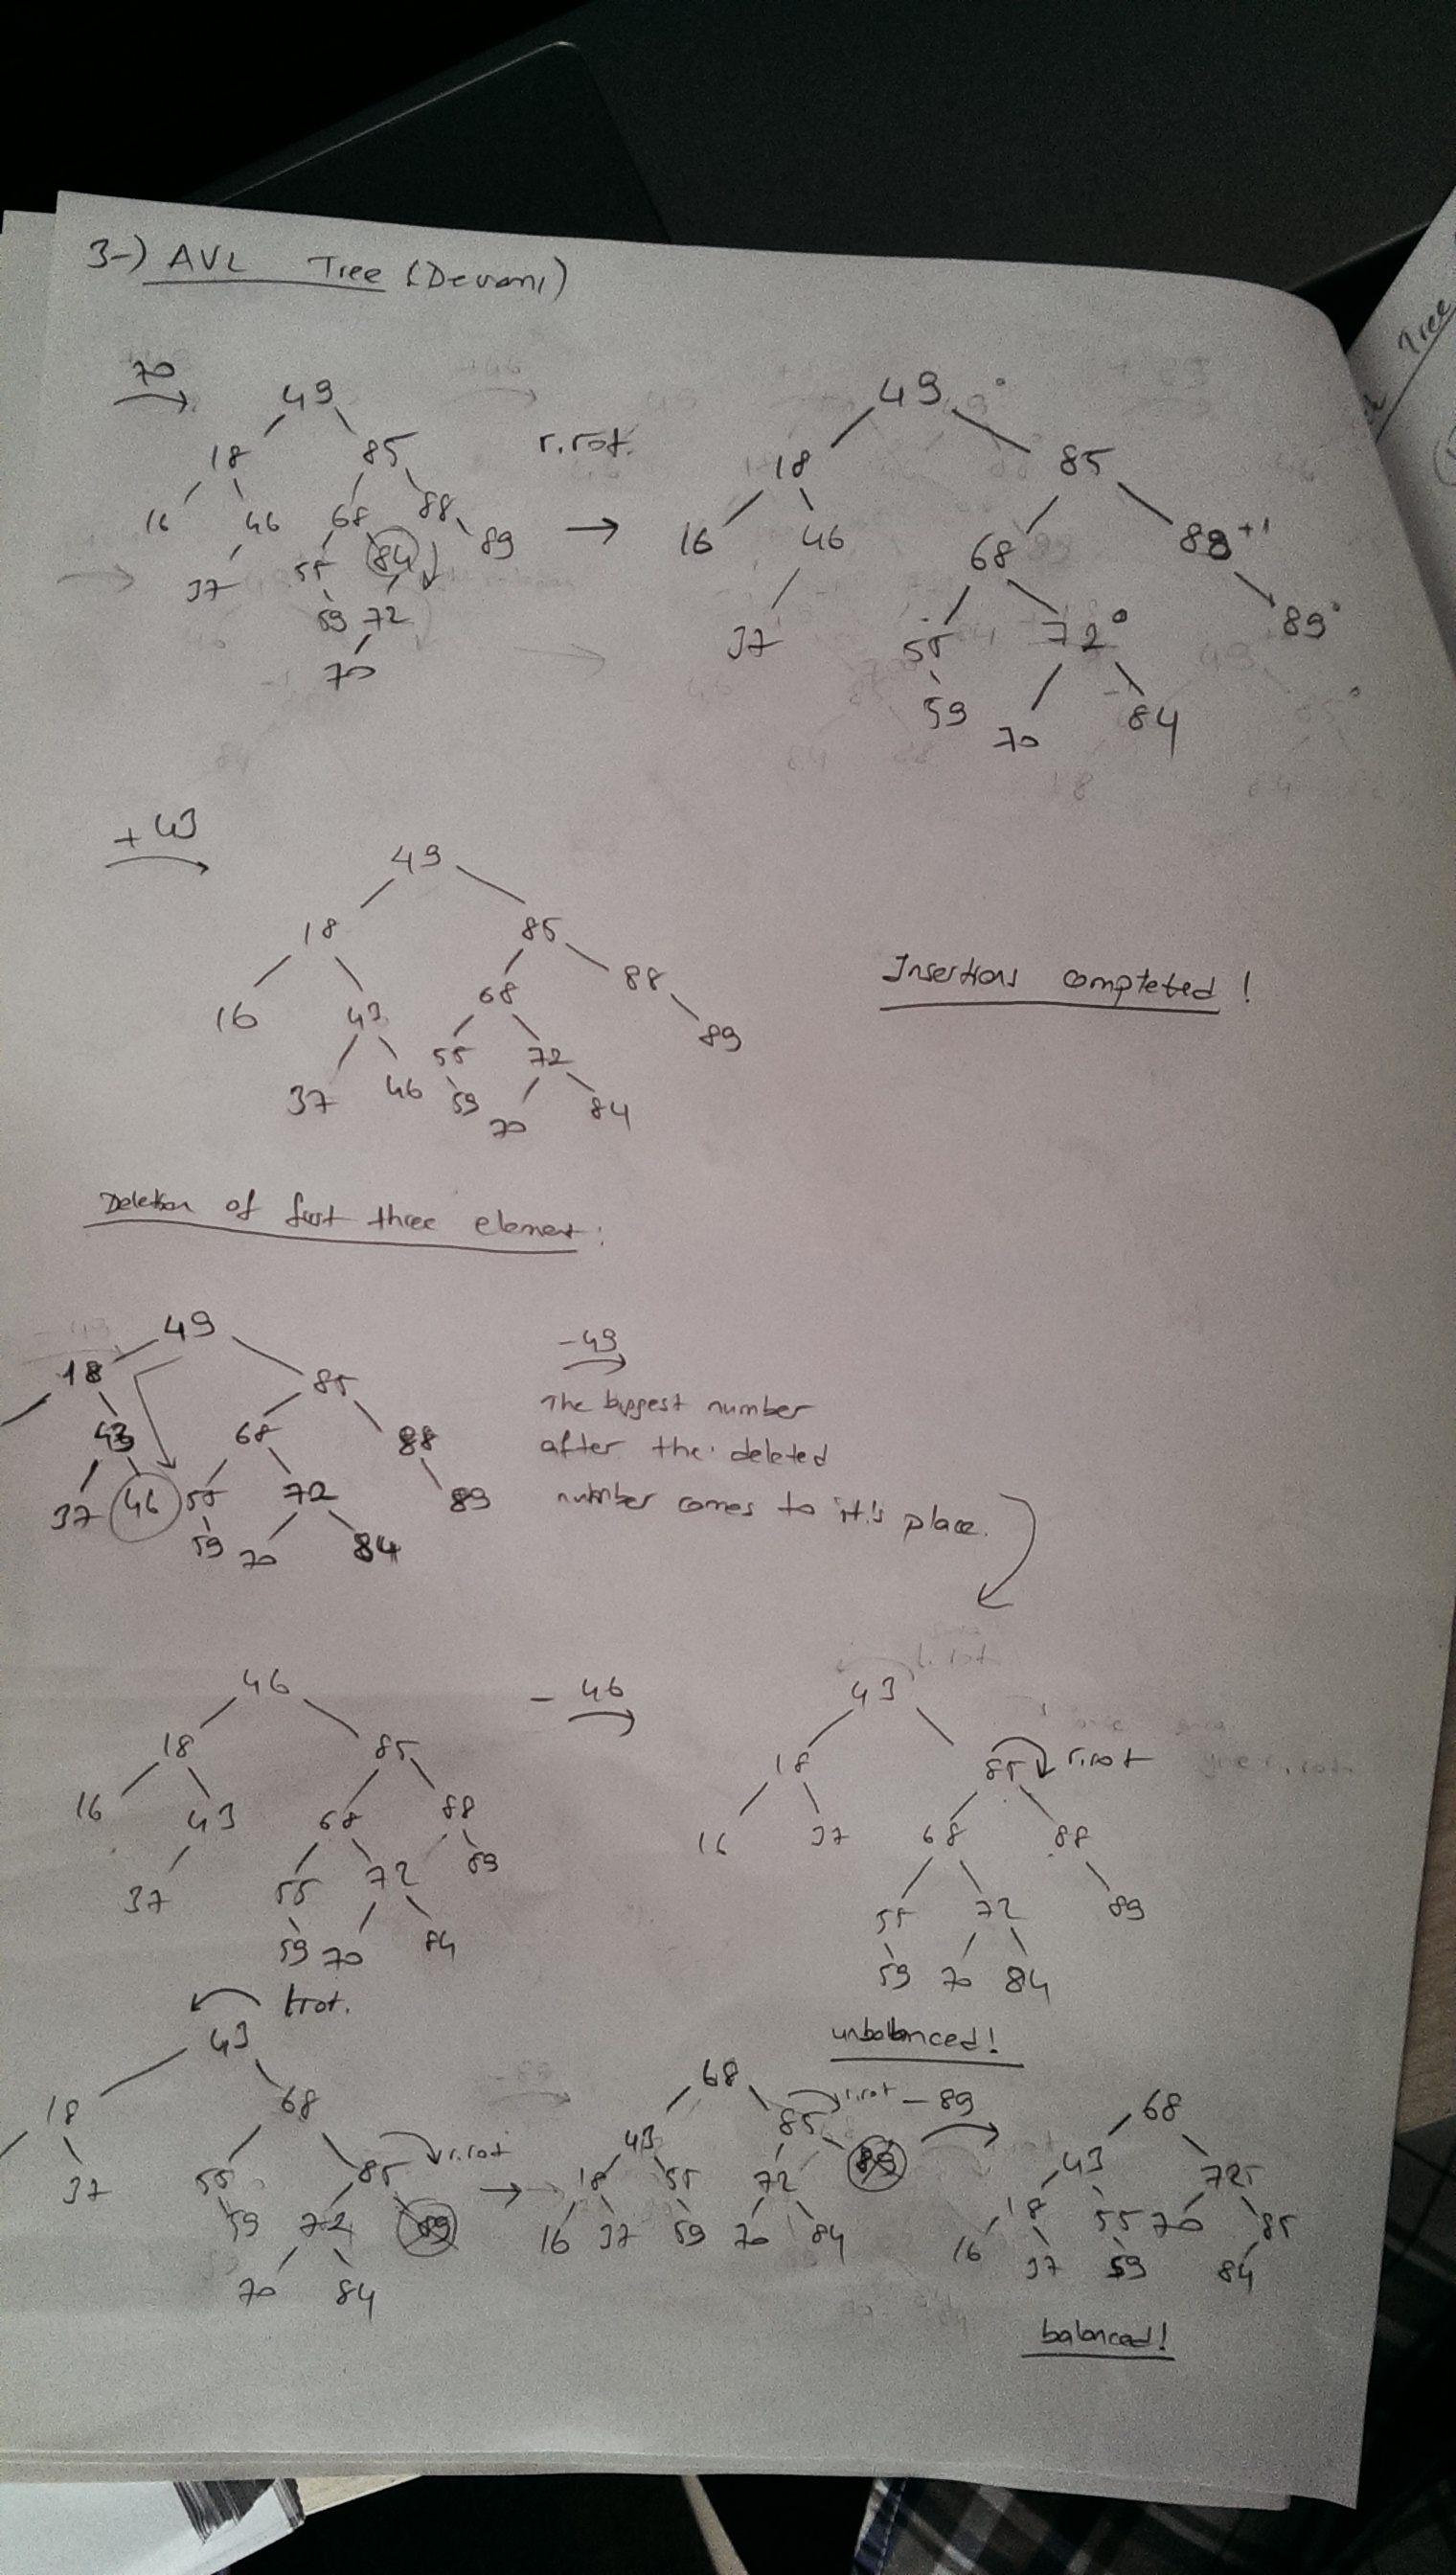 3-) AVL Tree (Devamı)
70
49
18 85
r.rot.
16 46 68 88
37 55 84 89
59 72
70
49
18 85
16 46 68 88+1
37 55 72 89
59 70 84
+43
49
18 85
16 43 68 88
37 46 55 72 89
59 70 84
Insertions completed!
Deletion of first three element:
49
18 85
43 68 88
37 46 55 72 89
59 70 84
-49
The biggest number
after the deleted
number comes to it's place.
46
18 85
16 43 68 88
37 55 72 89
59 70 84
- 46
43
18 85 r.rot
16 37 68 88
55 72 89
59 70 84
unbalanced!
l.rot.
43
18 68
37 55 85 r.rot
59 72
70 84
68
43 85 r.rot
18 55 72
16 37 59 70 84
- 89
68
43 72
18 55 70 85
16 37 59 84
balanced!
Tree